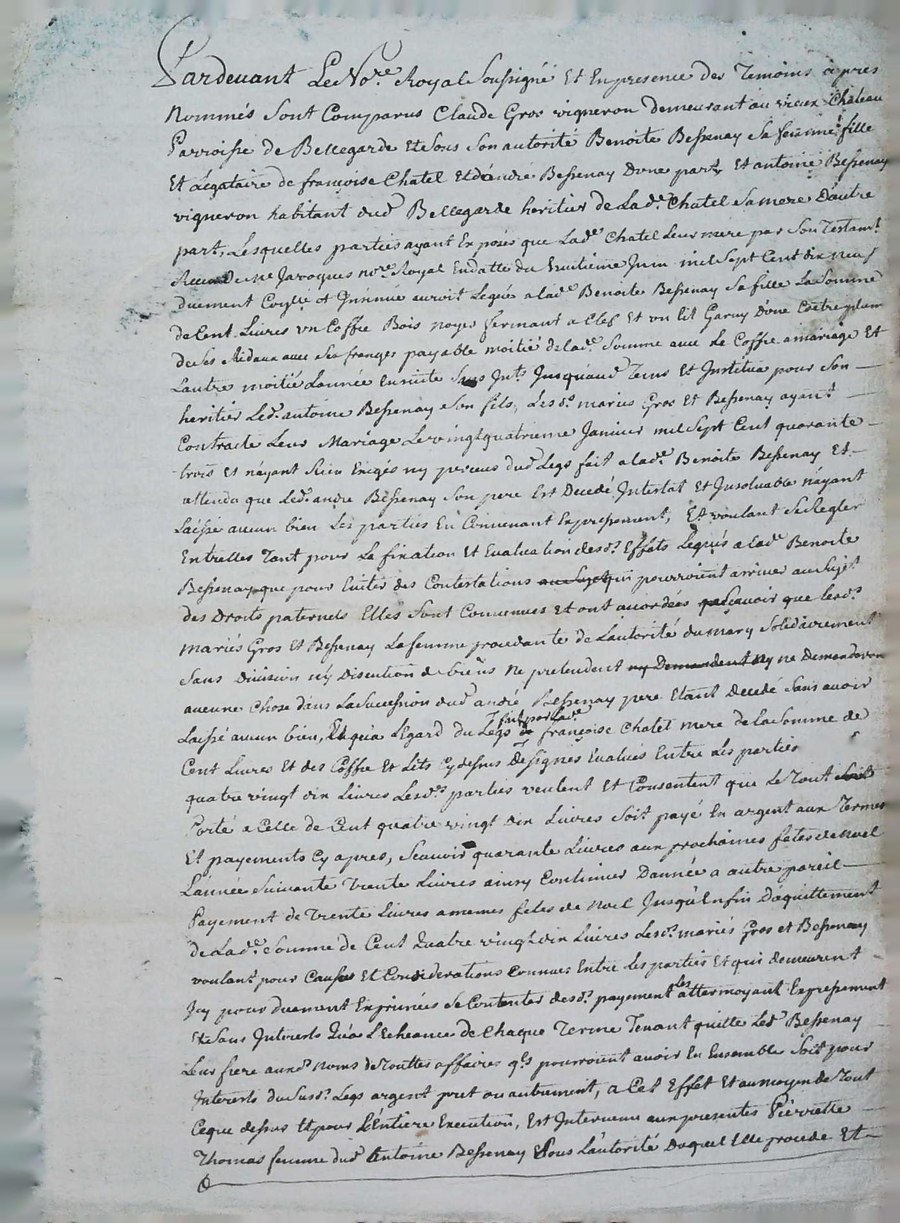 Pardevant Le No.re Royal Soussigné Et En presence des Temoins apres
Nommés sont Comparus Claude Gros vigneron demeurant au vieux Château
Parroisse de Bellegarde Et Sous Son autorité Benoite Bessenay Sa femme fille
Et Legataire de françoise Chatel Et d'andre Bessenay Done part, Et antoine Bessenay
vigneron habitant dud. Bellegarde heritier de Lad.e Chatel Sa mere D'autre
part, Lesquelles parties ayant Exposés que Lad.e Chatel Leur mere par Son Testam.t
Receu Me Jaroques no.re Royal En datte du huitieme Juin mil Sept Cent dix neuf
duement Et Insinué auroit Legué a lad.e Benoite Bessenay Sa fille La Somme
de Cent Livres un Coffre Bois noyer fermant a Clef Et un lit Garny D'une Coetre plume
de Ses Ridaux avec Ses franges payable moitié de lad.e Somme avec Le Coffre a mariage Et
Lautre moitié Lannée Ensuite Sans Int.s Jusquaud. Tems Et Institua pour Son
heritier Led. antoine Bessenay Son fils, Les d.s mariés Gros Et Bessenay ayant
Contracté Leur Mariage Le vingt quatrieme Janvier mil Sept Cent quarante
trois Et n'ayant Rien Exigés ny perceus dud. Legs fait a lad.e Benoite Bessenay Et
attendu que Led. andre Bessenay Son pere Est Decedé Intestat Et Insolvable n'ayant
Laissé aucun bien Les parties En Convenant Expressement, Et voulant Se Regler
Entrelles Tant pour La fixation Et Evaluation des d.s Effets Legués a lad.e Benoite
Bessenay que pour Eviter des Contestations au Sujet qui pourroient arriver au Sujet
des Droits paternels Elles Sont Convenues Et ont accordées Scavoir que les d.s
mariés Gros Et Bessenay La femme procedante de Lautorité du mary Solidairement
Sans Division ny Discution de biens ne pretendent ny Demandent ny ne Demanderont
aucune Chose dans La Succession dud. andré Bessenay pere Etant Decedé Sans avoir
Laissé aucun bien, Et qua L'Egard du Legs fait par Lad.e françoise Chatel mere de la Somme de
Cent Livres Et des Coffre Et Lits Cy dessus Designés Evalués Entre Les parties
quatre vingt dix Livres Les d.s parties veulent Et Consentent que Le Tout Soit
Porté a Celle de Cent quatre vingt dix Livres Soit payé En argent aux Termes
Et payements Cy apres, Scavoir quarante Livres aux prochaines fetes de Noel
L'année Suivante Trente Livres ainsy Continuer Dannée a autre pareil
Payement de Trente Livres a memes fetes de Noel Jusqu'Enfin D'aquittement
de Lad.e Somme de Cent Quatre vingt dix Livres Les d.s mariés Gros et Bessenay
voulant pour Causes Et Considerations Connues Entre les parties Et qui demeurent
Icy pour duement Exprimées Se Contenter des d.s payement Les attermoyant Expressement
Et Sans Interets Qua L'Echeance de Chaque Terme Tenant quitte Led. Bessenay
Leur frere aux d. noms de Touttes affaires q.ls pourroient avoir Eu Ensemble Soit pour
Interets du Susd. Legs argent pret ou autrement, a Cet Effet Et au moyen de Tout
Ceque dessus Et pour L'Entiere Execution, Est Intervenu aux presentes Pierrette
Thomas femme dud. Antoine Bessenay Sous L'autorité Duquel Elle procede Et